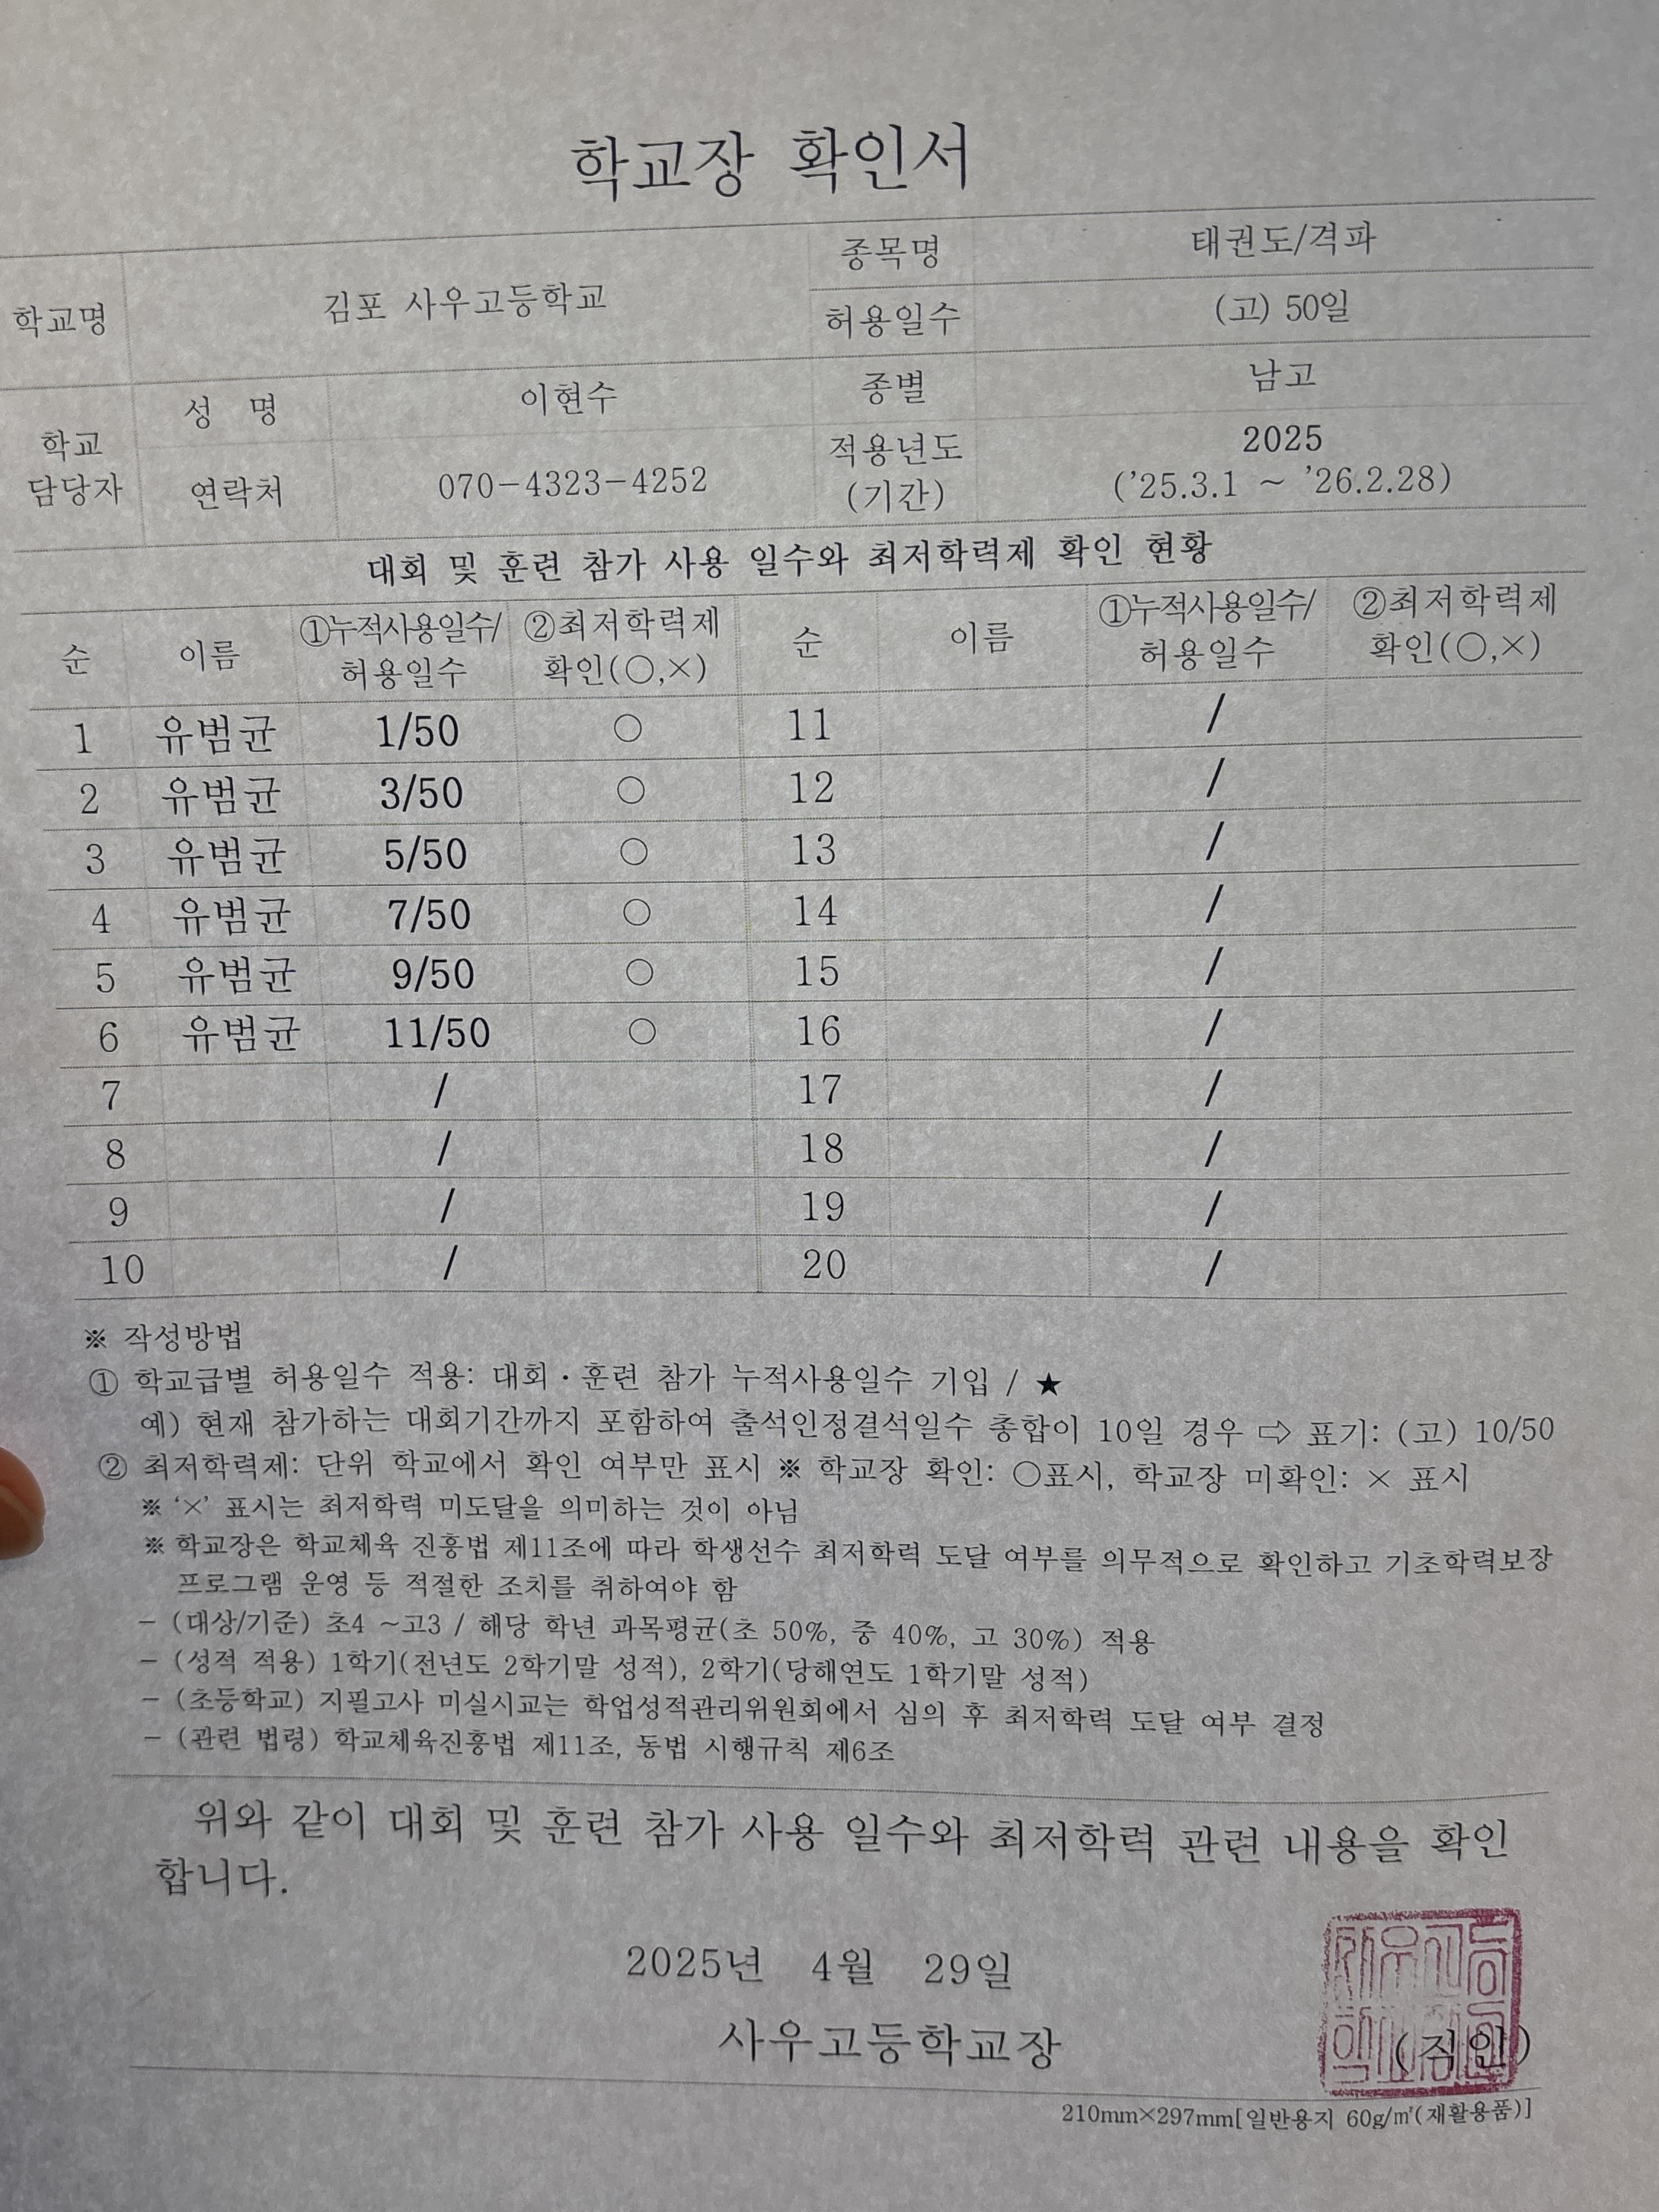 학교장 확인서
학교명 김포 사우고등학교 종목명 태권도/격파
허용일수 (고) 50일
학교 담당자 성 명 이현수 종별 남고
연락처 070-4323-4252 적용년도 (기간) 2025 ('25.3.1 ~ '26.2.28)
대회 및 훈련 참가 사용 일수와 최저학력제 확인 현황
순 이름 ①누적사용일수/허용일수 ②최저학력제 확인(○,×) 순 이름 ①누적사용일수/허용일수 ②최저학력제 확인(○,×)
1 유범균 1/50 ○ 11 /
2 유범균 3/50 ○ 12 /
3 유범균 5/50 ○ 13 /
4 유범균 7/50 ○ 14 /
5 유범균 9/50 ○ 15 /
6 유범균 11/50 ○ 16 /
7 / 17 /
8 / 18 /
9 / 19 /
10 / 20 /
※ 작성방법
① 학교급별 허용일수 적용: 대회·훈련 참가 누적사용일수 기입 / ★
예) 현재 참가하는 대회기간까지 포함하여 출석인정결석일수 총합이 10일 경우 ⇨ 표기: (고) 10/50
② 최저학력제: 단위 학교에서 확인 여부만 표시 ※ 학교장 확인: ○표시, 학교장 미확인: × 표시
※ '×' 표시는 최저학력 미도달을 의미하는 것이 아님
※ 학교장은 학교체육 진흥법 제11조에 따라 학생선수 최저학력 도달 여부를 의무적으로 확인하고 기초학력보장
프로그램 운영 등 적절한 조치를 취하여야 함
- (대상/기준) 초4 ~고3 / 해당 학년 과목평균(초 50%, 중 40%, 고 30%) 적용
- (성적 적용) 1학기(전년도 2학기말 성적), 2학기(당해연도 1학기말 성적)
- (초등학교) 지필고사 미실시교는 학업성적관리위원회에서 심의 후 최저학력 도달 여부 결정
- (관련 법령) 학교체육진흥법 제11조, 동법 시행규칙 제6조
위와 같이 대회 및 훈련 참가 사용 일수와 최저학력 관련 내용을 확인
합니다.
2025년 4월 29일
사우고등학교장 (직인)
210mm×297mm[일반용지 60g/㎡(재활용품)]